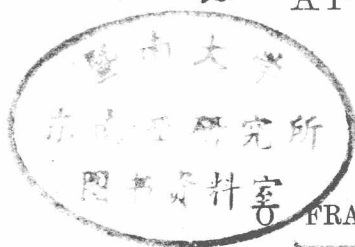 A
暨南大学
东南亚研究所
图书资料室
O FRA